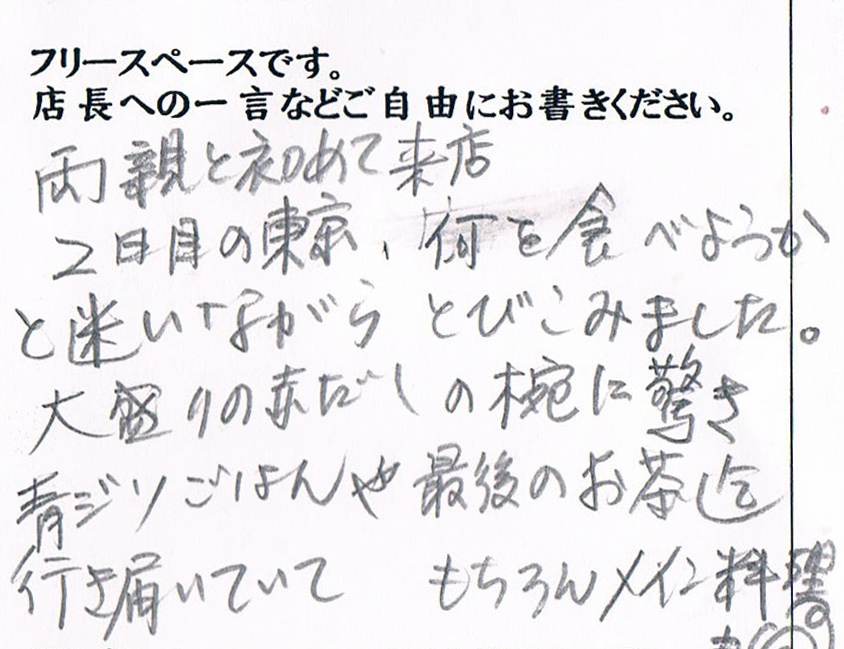 フリースペースです。
店長への一言などご自由にお書きください。
両親と初めて来店
2日目の東京、何を食べようか
と迷いながらとびこみました。
大盛りの赤だしの椀に驚き
青ジソごはんや最後のお茶迄
行き届いていて もちろんメイン料理
の